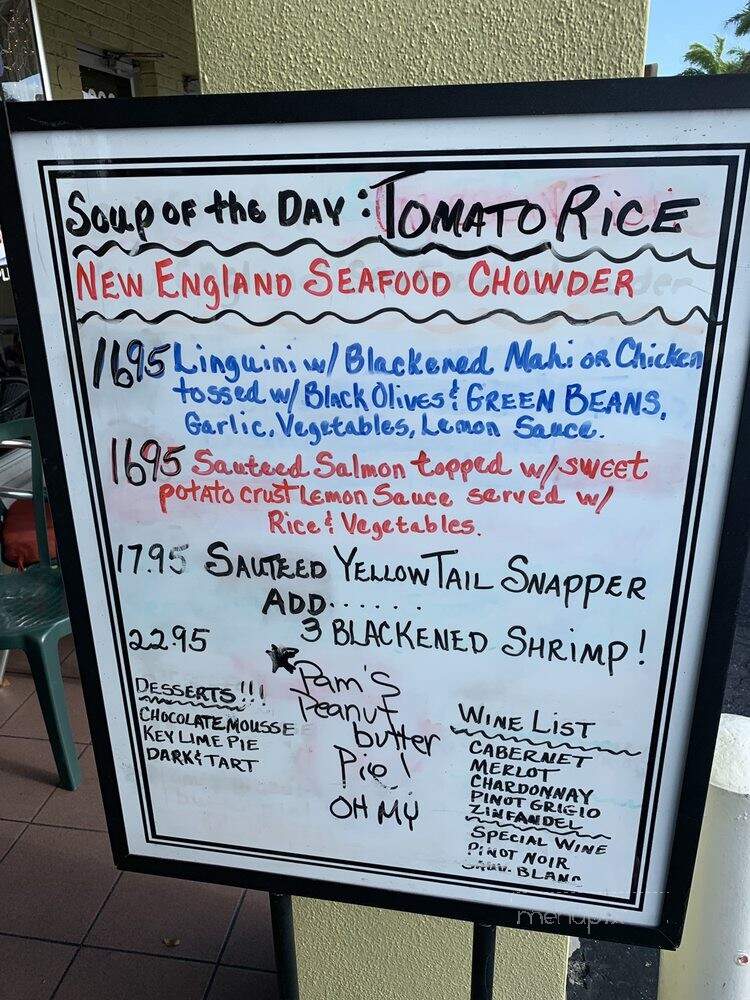 Soup of the Day: Tomato Rice
New England Seafood Chowder
1695 Linguini w/ Blackened Mahi or Chicken
tossed w/ Black Olives & Green Beans,
Garlic, Vegetables, Lemon Sauce.
1695 Sauteed Salmon topped w/ sweet
potato crust Lemon Sauce served w/
Rice & Vegetables.
17.95 Sauteed YellowTail Snapper
Add......
2295 3 Blackened Shrimp!
Desserts!!!
Chocolate Mousse
Key Lime Pie
Dark & Tart
★Pam's
Peanut
butter
Pie!
Oh My
Wine List
Cabernet
Merlot
Chardonnay
Pinot Grigio
Zinfandel
Special Wine
Pinot Noir
Sauv. Blanc